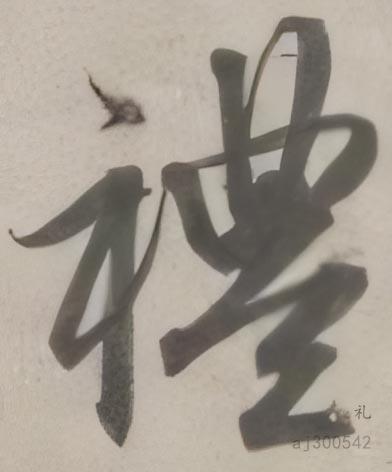 禮
礼
aj300542